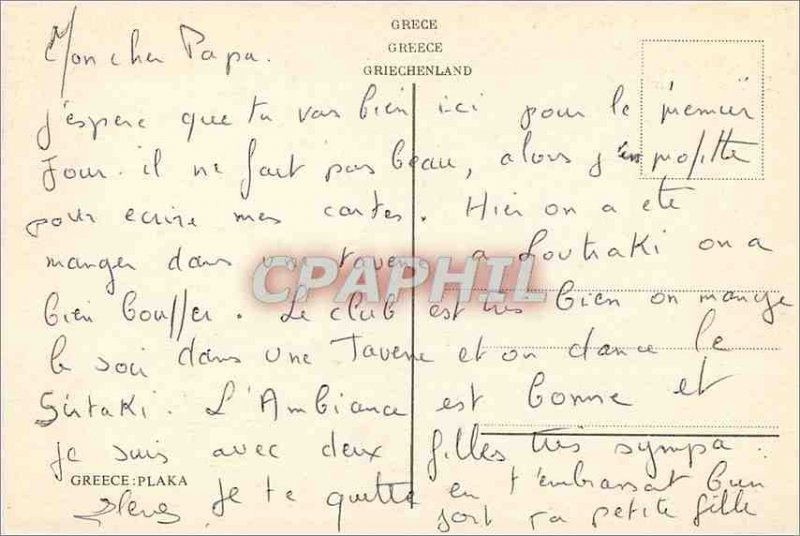 GRECE
GREECE
GRIECHENLAND
Mon cher Papa.
j'espere que tu vas bien ici pour le premier
jour. il ne fait pas beau, alors j'en profitte
pour ecrire mes cartes. Hier on a ete
manger dans une taverne a Loutraki on a
bien bouffer. Le club est très bien on mange
le soir dans une Taverne et on dance le
Sirtaki. L'Ambiance est bonne et
je suis avec deux filles très sympa.
GREECE:PLAKA
je te quitte en t'embrassat bien
fort ta petite fille
CPAPHIL